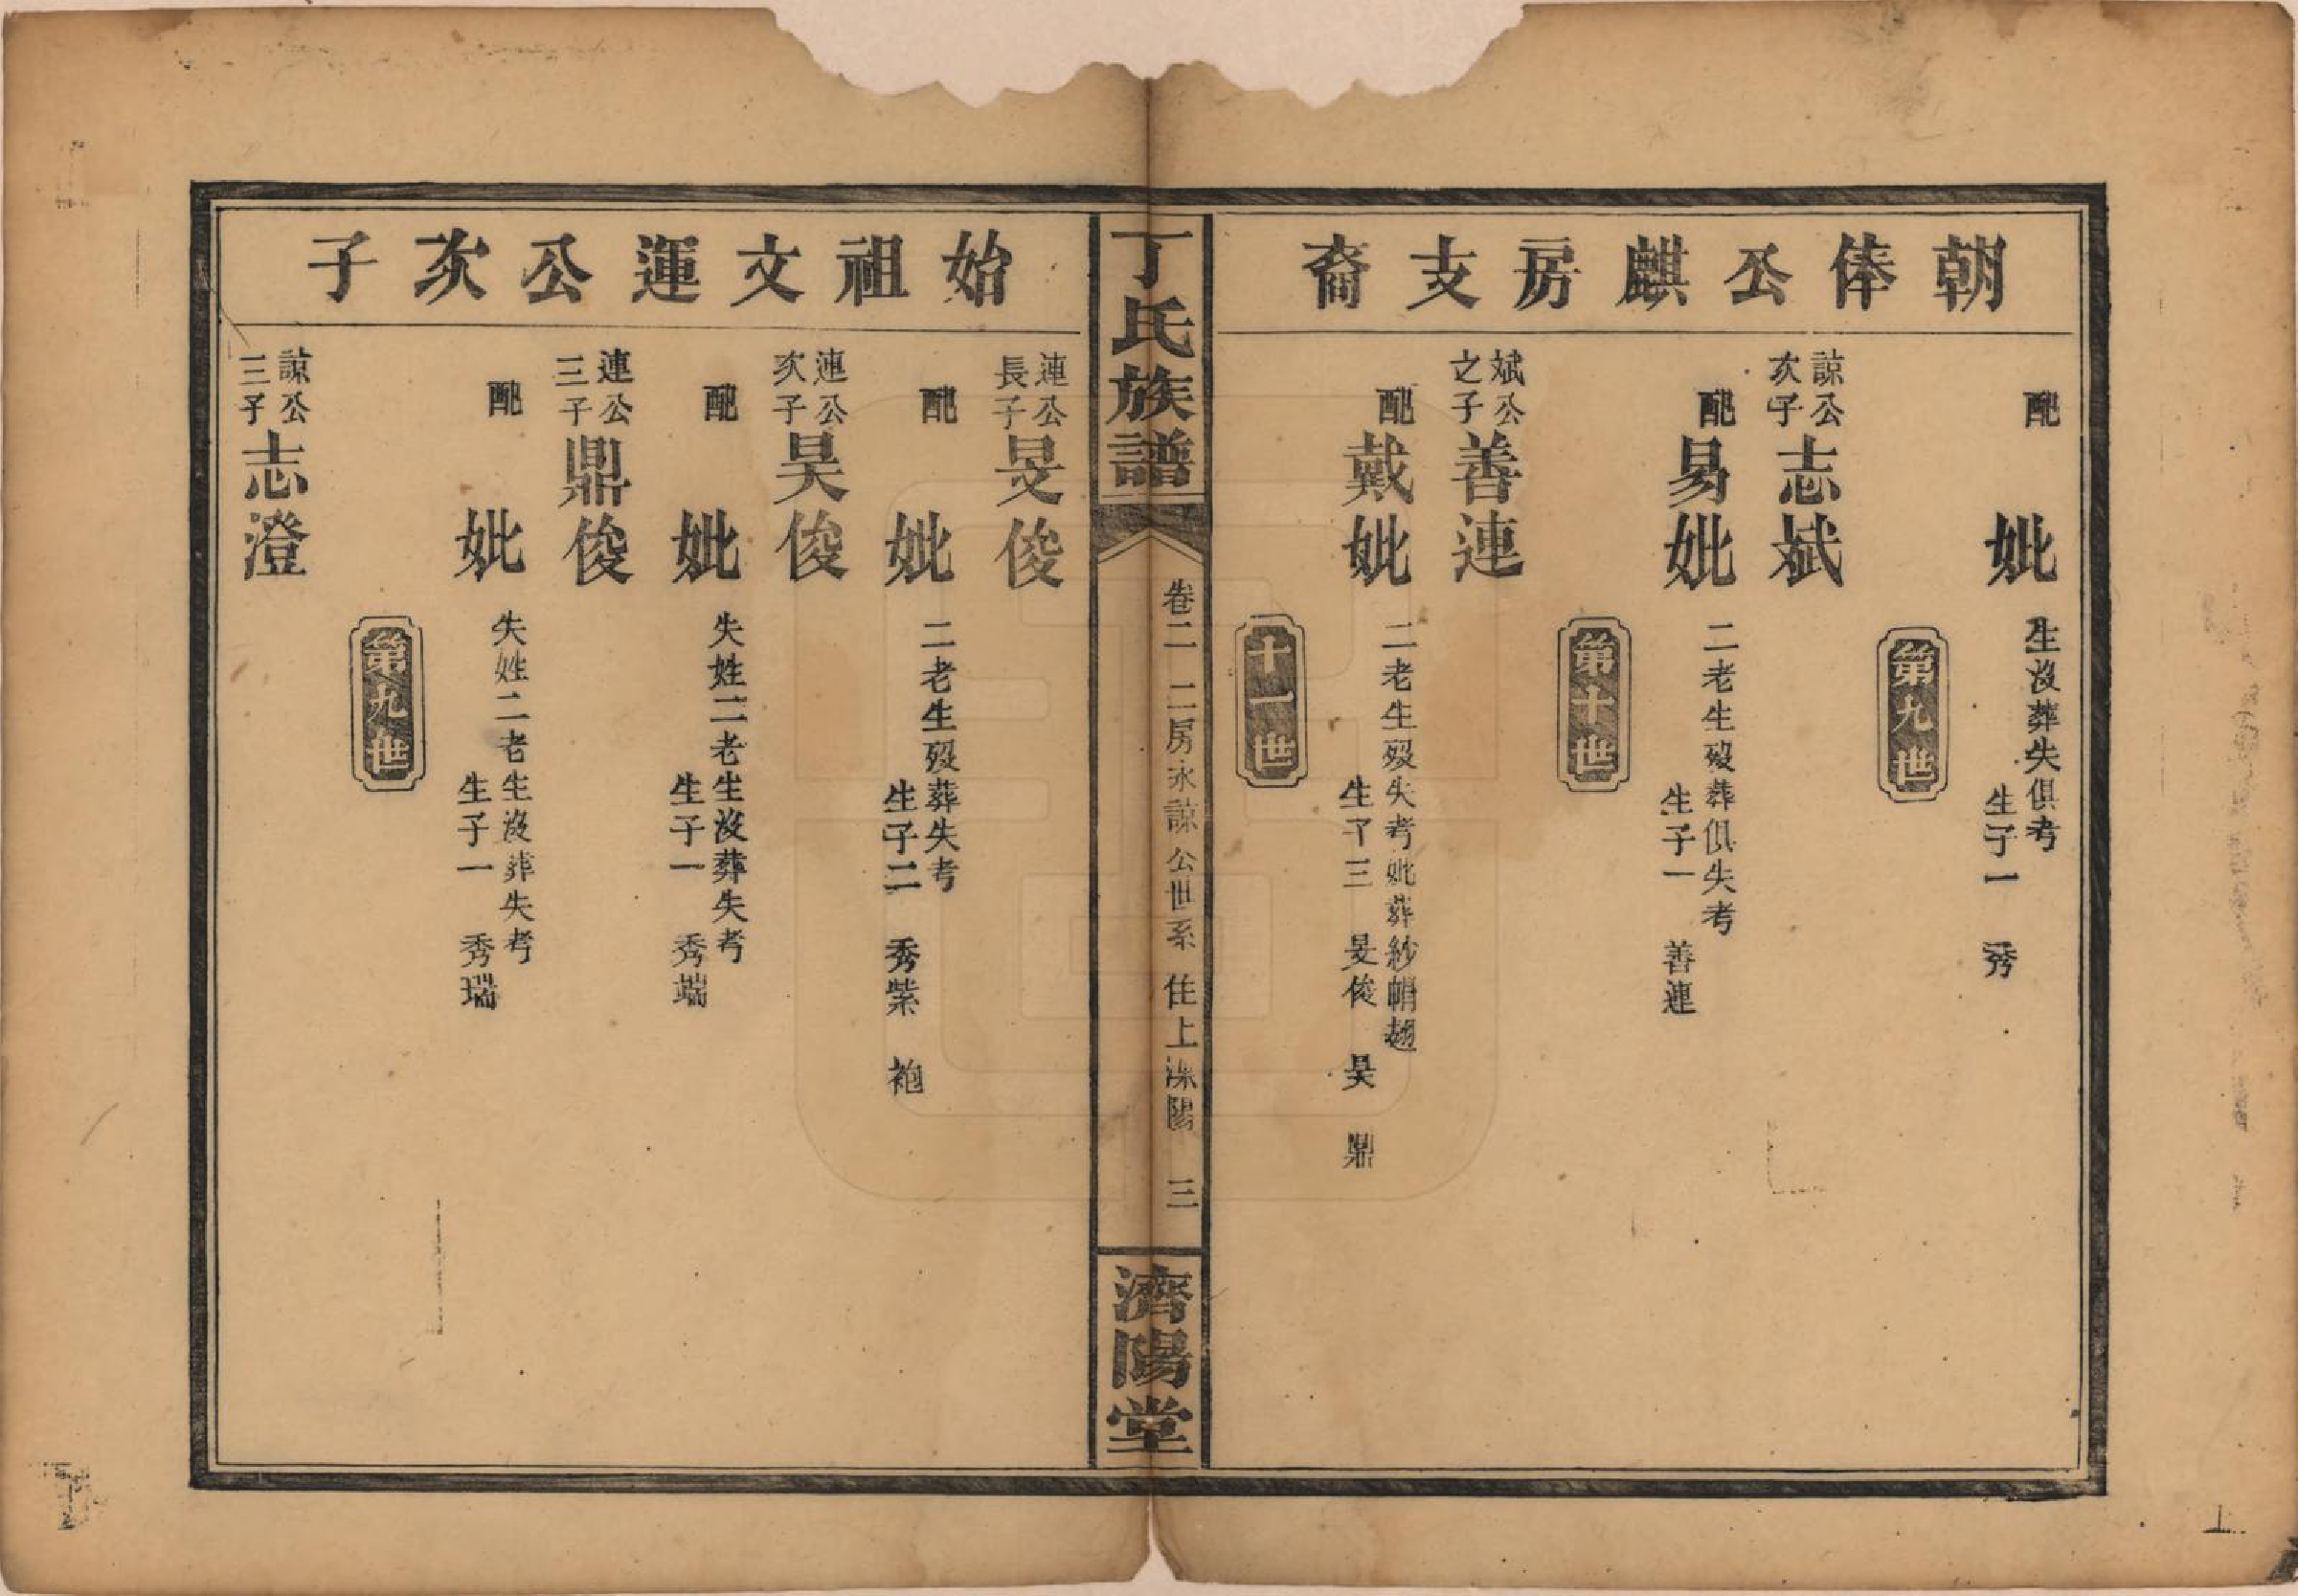 朝俸公麒房支裔
配 妣
生沒葬失俱考
生子一 秀
第九世
諒公次子 志斌
配易妣
二老生歿葬俱失考
生子一 善連
第十世
斌公之子 善連
配戴妣
二老生歿失考妣葬紗帽翅
生子三 旻俊 昊 鼎
十一世
丁氏族譜
卷二 二房永諒公世系 住上溁陽 三
濟陽堂
始祖文運公次子
連公長子 旻俊
配 妣
二老生歿葬失考
生子二 秀紫 袍
連公次子 昊俊
配 妣
失姓二老生沒葬失考
生子一 秀端
連公三子 鼎俊
配 妣
失姓二老生沒葬失考
生子一 秀瑞
第九世
諒公三子 志澄